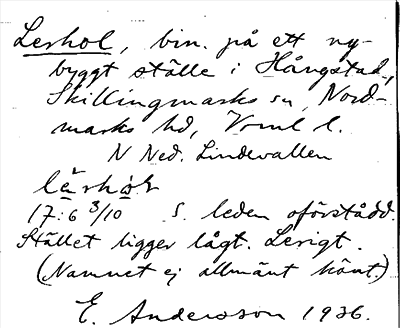 Lerhol, bin. på ett ny-
byggt ställe i Hångstad,
Skillingmarks sn, Nord-
marks hd, Vrml l.
N Ned. Lindevallen
lȧrhȯl
17:6 3/10 S. leden oförstådd.
Stället ligger lågt. Lerigt.
(Namnet ej allmänt känt.)
E. Andersson 1936.